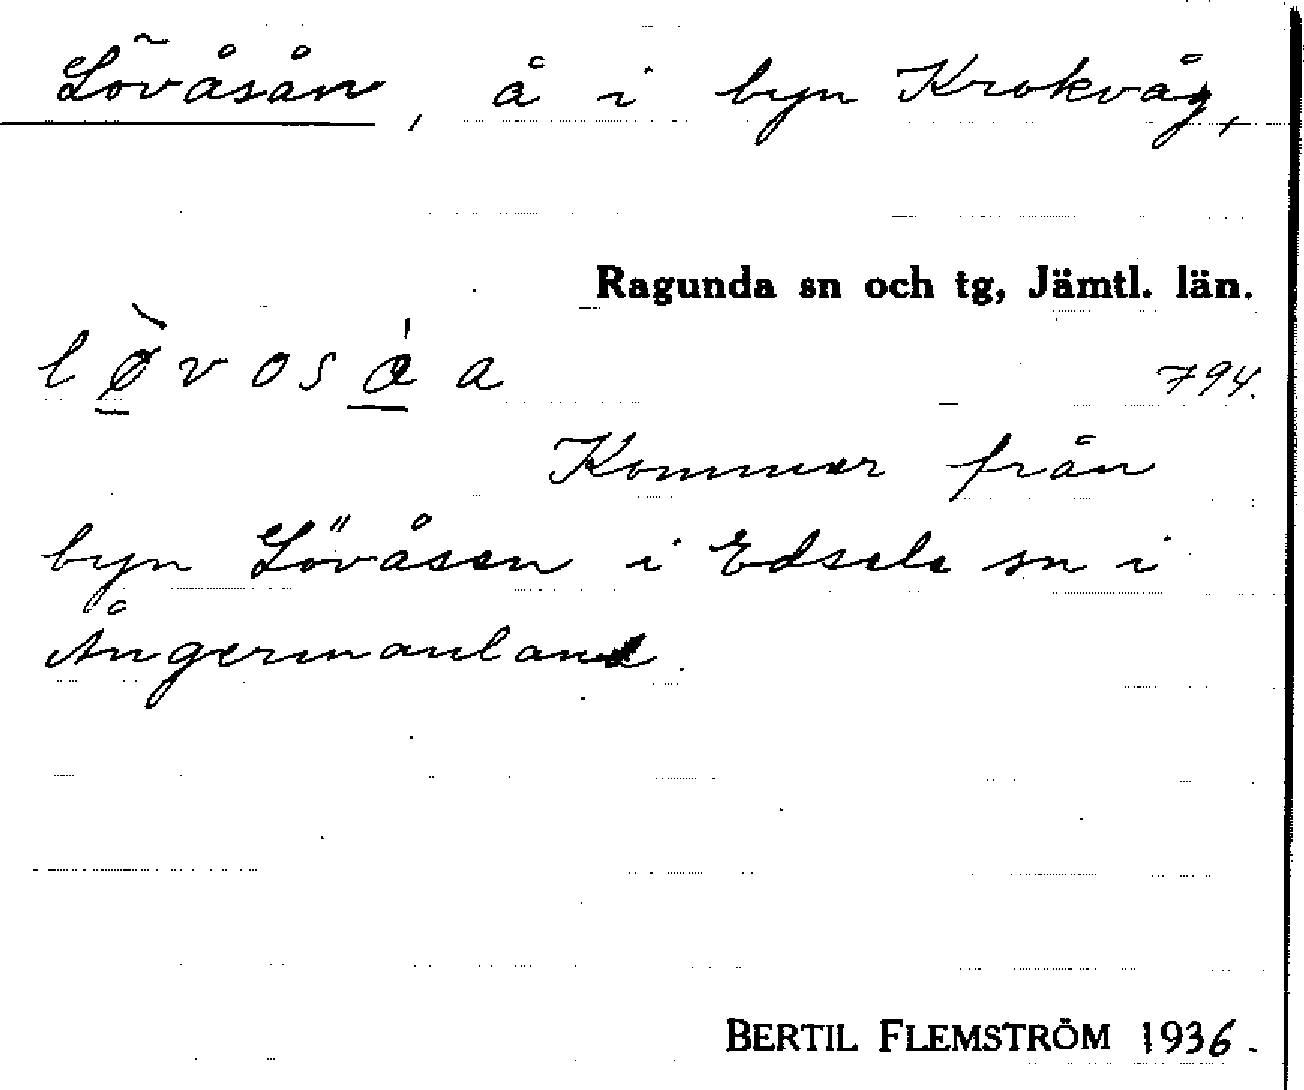 Lövåsån, å i byn Krokvåg,
Ragunda sn och tg, Jämtl. län.
lø̀vosá̱a 794.
Kommer från
byn Lövåsen i Edsele sn i
Ångermanland.
BERTIL FLEMSTRÖM 1936.